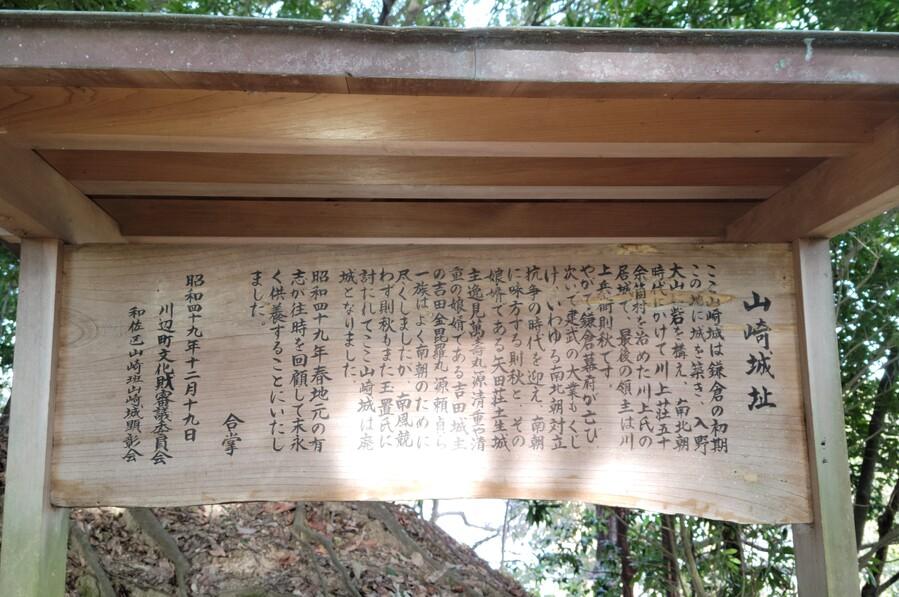 山崎城址
ここ山崎城は鎌倉の初期
この地に城を築き、入野
大山に砦を構え、南北朝
時代にかけて、川上荘五十
余箇村を治めた川上氏の
居城で、最後の領主は川
上兵衛則秋です。
やがて鎌倉幕府が亡び
次いで建武の大業も空しく
け、いわゆる南北朝対立
抗争の時代を迎え、南朝
に味方する則秋と、その
娘婿である矢田荘土生城
主逸見萬寿丸源清重や清
重の娘婿である吉田城主
の吉田金毘羅丸源頼貞ら
一族はよく南朝のために
尽くしましたが、南風競
わず則秋もまた玉置氏に
討たれてここ山崎城は廃
城となりました。
昭和四十九年春地元の有
志が往時を回顧して末永
く供養することにいたし
ました。
合掌
昭和四十九年十二月十九日
川辺町文化財審議委員会
和佐区山崎垣山崎城顕彰会